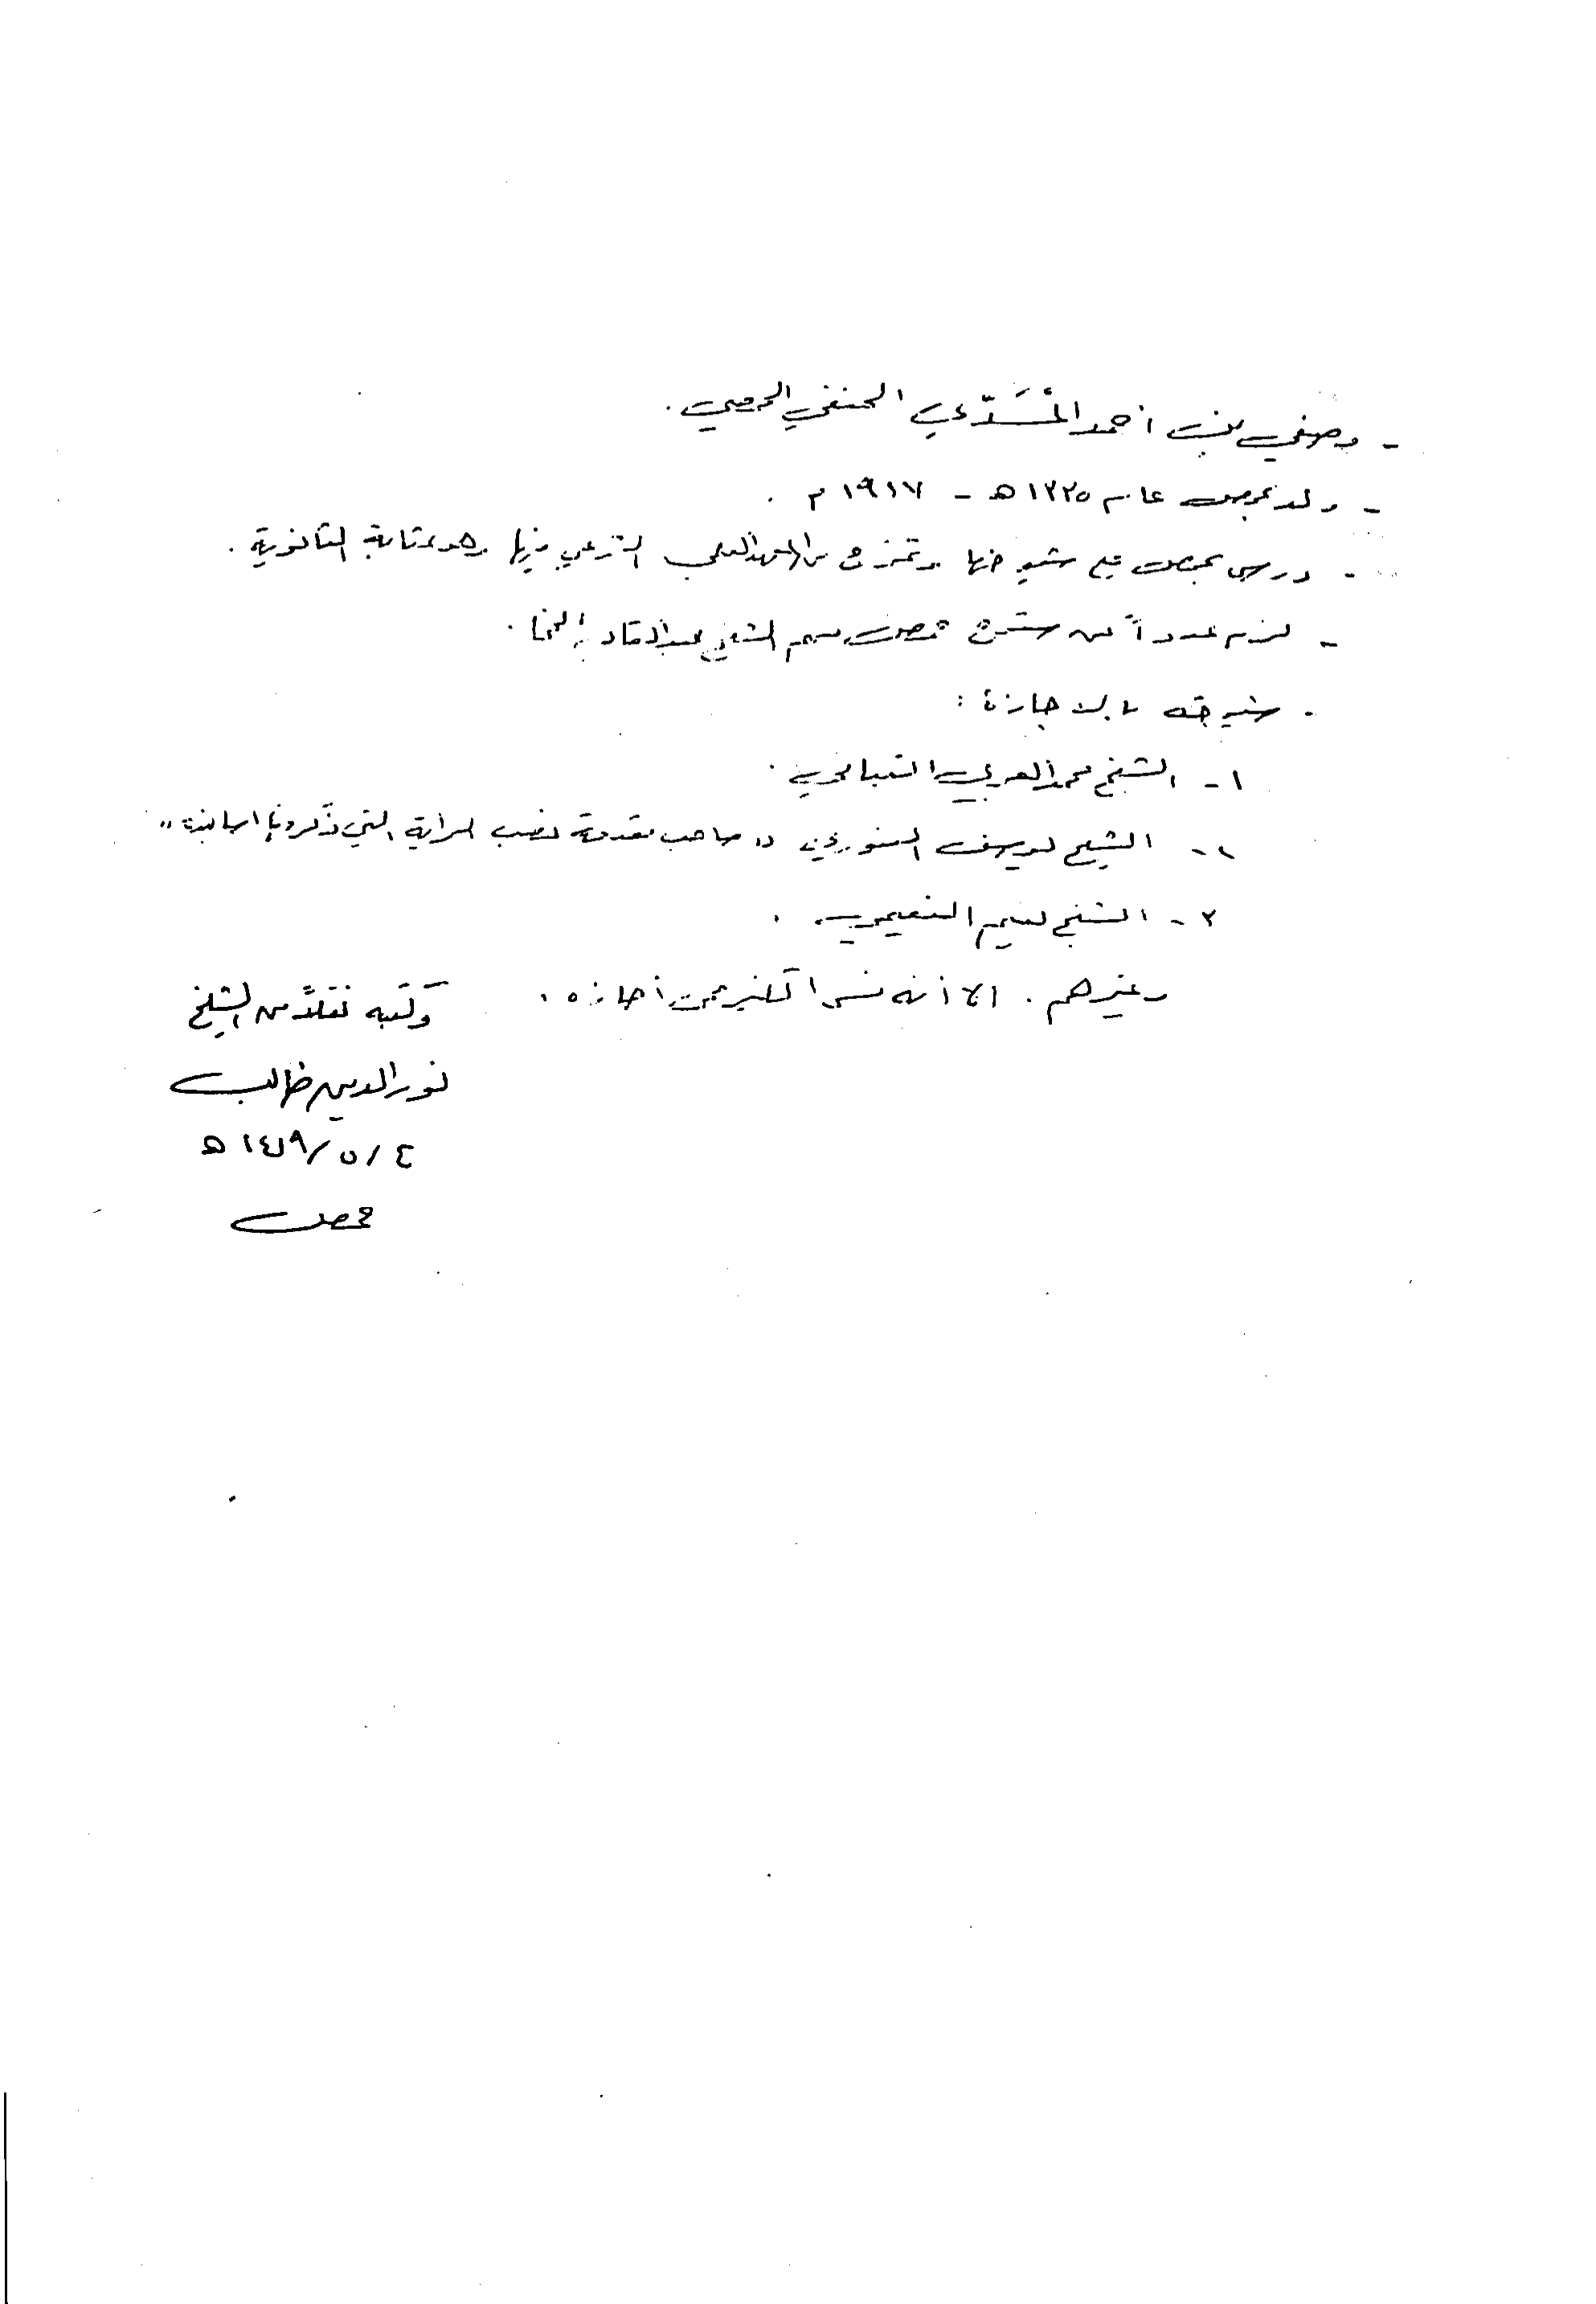 - وصفي بن أحمد المَسَدّي الحنفي الحمصي .
- ولد بحمص عام ١٣٣٥ هـ - ١٩١٧ م .
- درس بحمص على شيوخها وتخرج من المعهد العلمي الشرعي فيها وهو بمثابة الثانوية .
- لزم عدداً من شيوخ حمص منهم الشيخ عبدالقادر الخجا .
- شيوخه بالاجازة :
١ - الشيخ محمد العربي التباني .
٢ - الشيخ يوسف البنوري " صاحب مقدمة نصب الراية التي ذكر فيها أسانيده "
٣ - الشيخ نعيم النعيمي .
وغيرهم . الا أنه نسي الكثير ممن أجازه .
وكتبه نقلاً من الشيخ
نور الدين طالب
٤ / ٥ / ١٤١٩ هـ
حمص